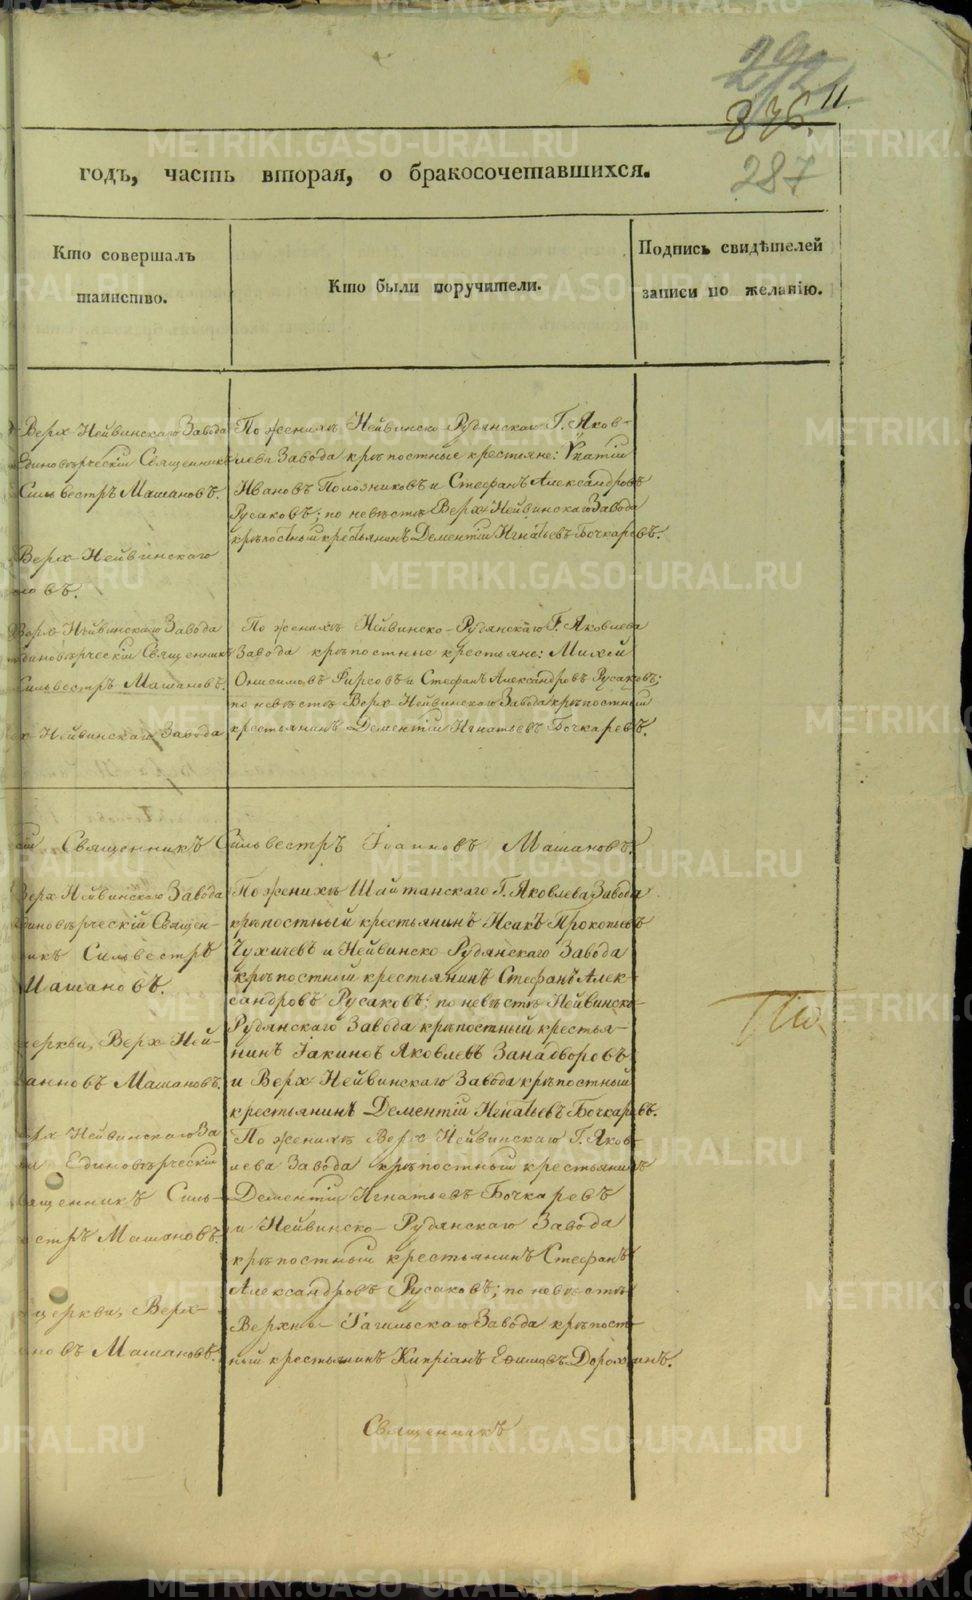 292
11.
336.
287
годъ, часть вторая, о бракосочетавшихся.
Кто совершалъ
таинство.
Кто были поручители.
Подпись свидѣтелей
записи по желанію.
Верх-Нейвинскаго Завода
Единовѣрческій Священникъ
Сильвестръ Машановъ.
Верх-Нейвинскаго
новъ.
По женихѣ Нейвинско Рудянскаго Г. Яков-
лева Завода крѣпостные крестьяне:
Ивановъ Положниковъ и Стефанъ Александровъ
Русаковъ; по невѣстѣ Верх-Нейвинскаго Завода
крѣпостный крестьянинъ Дементій Игнатьевъ Бочкаревъ.
Верх-Нейвинскаго Завода
Единовѣрческій Священникъ
Сильвестръ Машановъ.
х-Нейвинскаго Завода
По женихѣ Нейвинско-Рудянскаго Г. Яковлева
Завода крѣпостные крестьяне: Михей
Онисимовъ Фирсовъ и Стефанъ Александровъ Русаковъ;
по невѣстѣ Верх Нейвинскаго Завода крѣпостный
крестьянинъ Дементій Игнатьевъ Бочкаревъ.
ій Священникъ Сильвестръ Іоанновъ Машановъ.
Верх Нейвинскаго Завода
диновѣрческій Священ-
никъ Сильвестръ
Машановъ.
церкви, Верх-Ней-
анновъ Машановъ.
По женихѣ Шайтанскаго Г. Яковлева Завода
крѣпостный крестьянинъ Исакъ Прокопьевъ
Чухичевъ и Нейвинско Рудянскаго Завода
крѣпостный крестьянинъ Стефанъ Алек-
сандровъ Русаковъ; по невѣстѣ Нейвинско-
Рудянскаго Завода крѣпостный крестья-
нинъ Іакинѳъ Яковлевъ Занадворовъ
и Верх Нейвинскаго Завода крѣпостный
крестьянинъ Дементій Игнатьевъ Бочкаревъ.
рх Нейвинскаго За
Единовѣрческій
ященникъ Силь-
естръ Машановъ.
церкви, Верх-
новъ Машановъ.
По женихѣ Верх Нейвинскаго Г. Яков-
лева Завода крѣпостный крестьянинъ
Дементій Игнатьевъ Бочкаревъ
и Нейвинско-Рудянскаго Завода
крѣпостный крестьянинъ Стефанъ
Александровъ Русаковъ; по невѣстѣ
Верхне-Тагильскаго Завода крѣпост-
ный крестьянинъ Кипріанъ Ефимовъ Дорохинъ.
Священникъ
METRIKI.GASO-URAL.RU